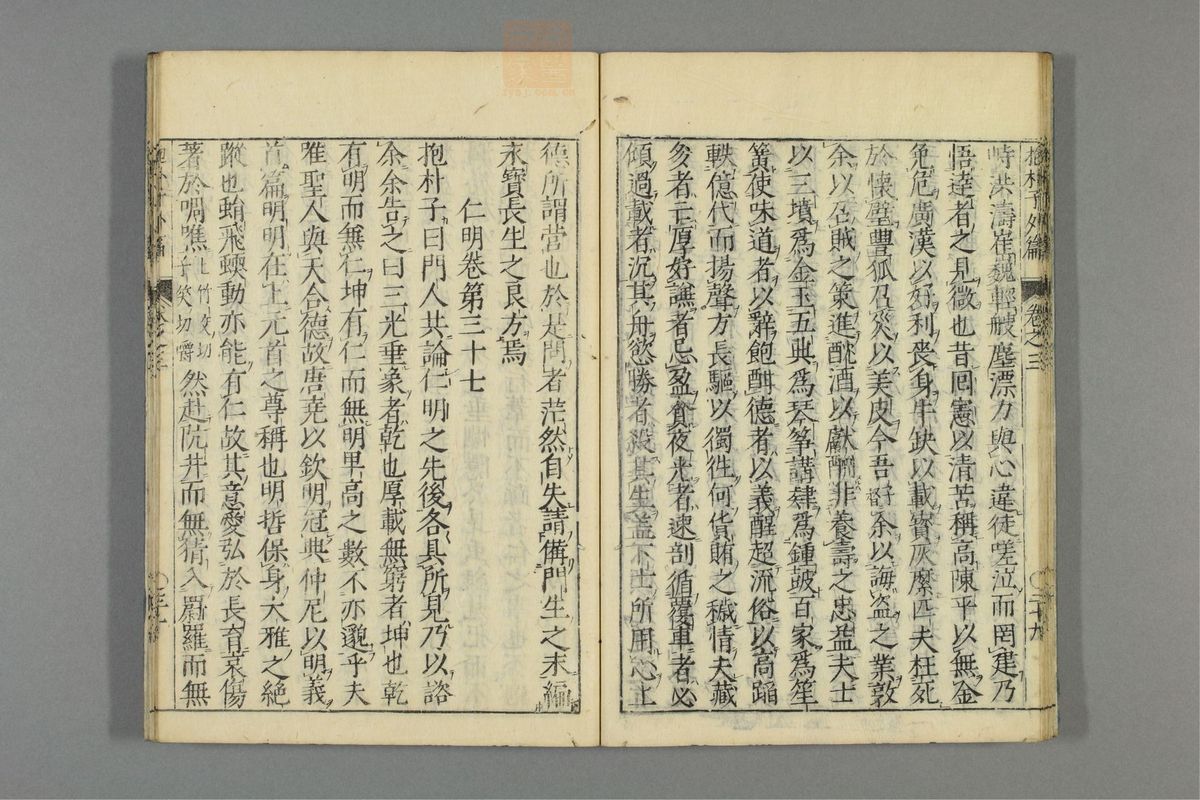 抱朴子外篇 卷之三 二十九
峙洪濤崔巍輕艘塵漂力與心違徒嗟泣而罔逮乃
悟達者之見微也昔回憲以清苦稱高陳平以無金
免危廣漢以好利喪身牛缺以載寶灰縻匹夫枉死
於懷璧豐狐召災以美皮今吾子督余以誨盜之業敦
余以召賊之策進酖酒以獻酬非養壽之忠益夫士
以三墳爲金玉五典爲琴箏講肆爲鍾皷百家爲笙
簧使味道者以辭飽酣德者以義醒超流俗以高蹈
軼億代而揚聲方長驅以獨徃何貨賄之穢情夫藏
多者亡厚好謙者忌盈貪夜光者速剖循覆車者必
傾過載者沉其舟慾勝者殺其生蓋下士所用心上
德所謂營也於是問者茫然自失請備門生之末編
永寶長生之良方焉
仁明卷第三十七
抱朴子曰門人共論仁明之先後各具所見乃以諮
余余告之曰三光垂象者乾也厚載無窮者坤也乾
有明而無仁坤有仁而無明卑高之數不亦邈乎夫
唯聖人與天合德故唐堯以欽明冠典仲尼以明義
首篇明明在上元首之尊稱也明哲保身大雅之絕
蹤也蜎飛蝡動亦能有仁故其意愛弘於長育哀傷
著於啁噍上竹交切下子笑切嚼然赴阬井而無猜入羅羅而無